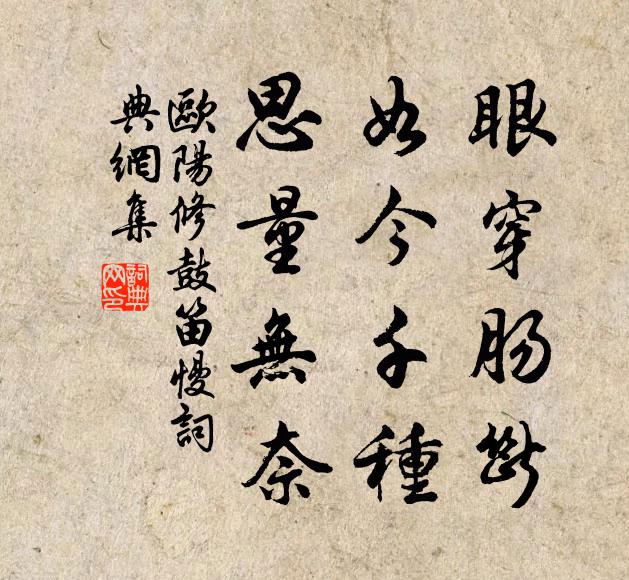 眼穿腸斷
如今千種
思量無奈
歐陽修鼓笛慢詞
典網集
詞典
网印